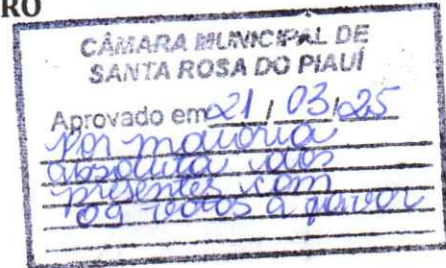 RO
CÂMARA MUNICIPAL DE
SANTA ROSA DO PIAUÍ
Aprovado em 21 / 03/25
Por maioria
absoluta dos
presentes com
09 votos a favor